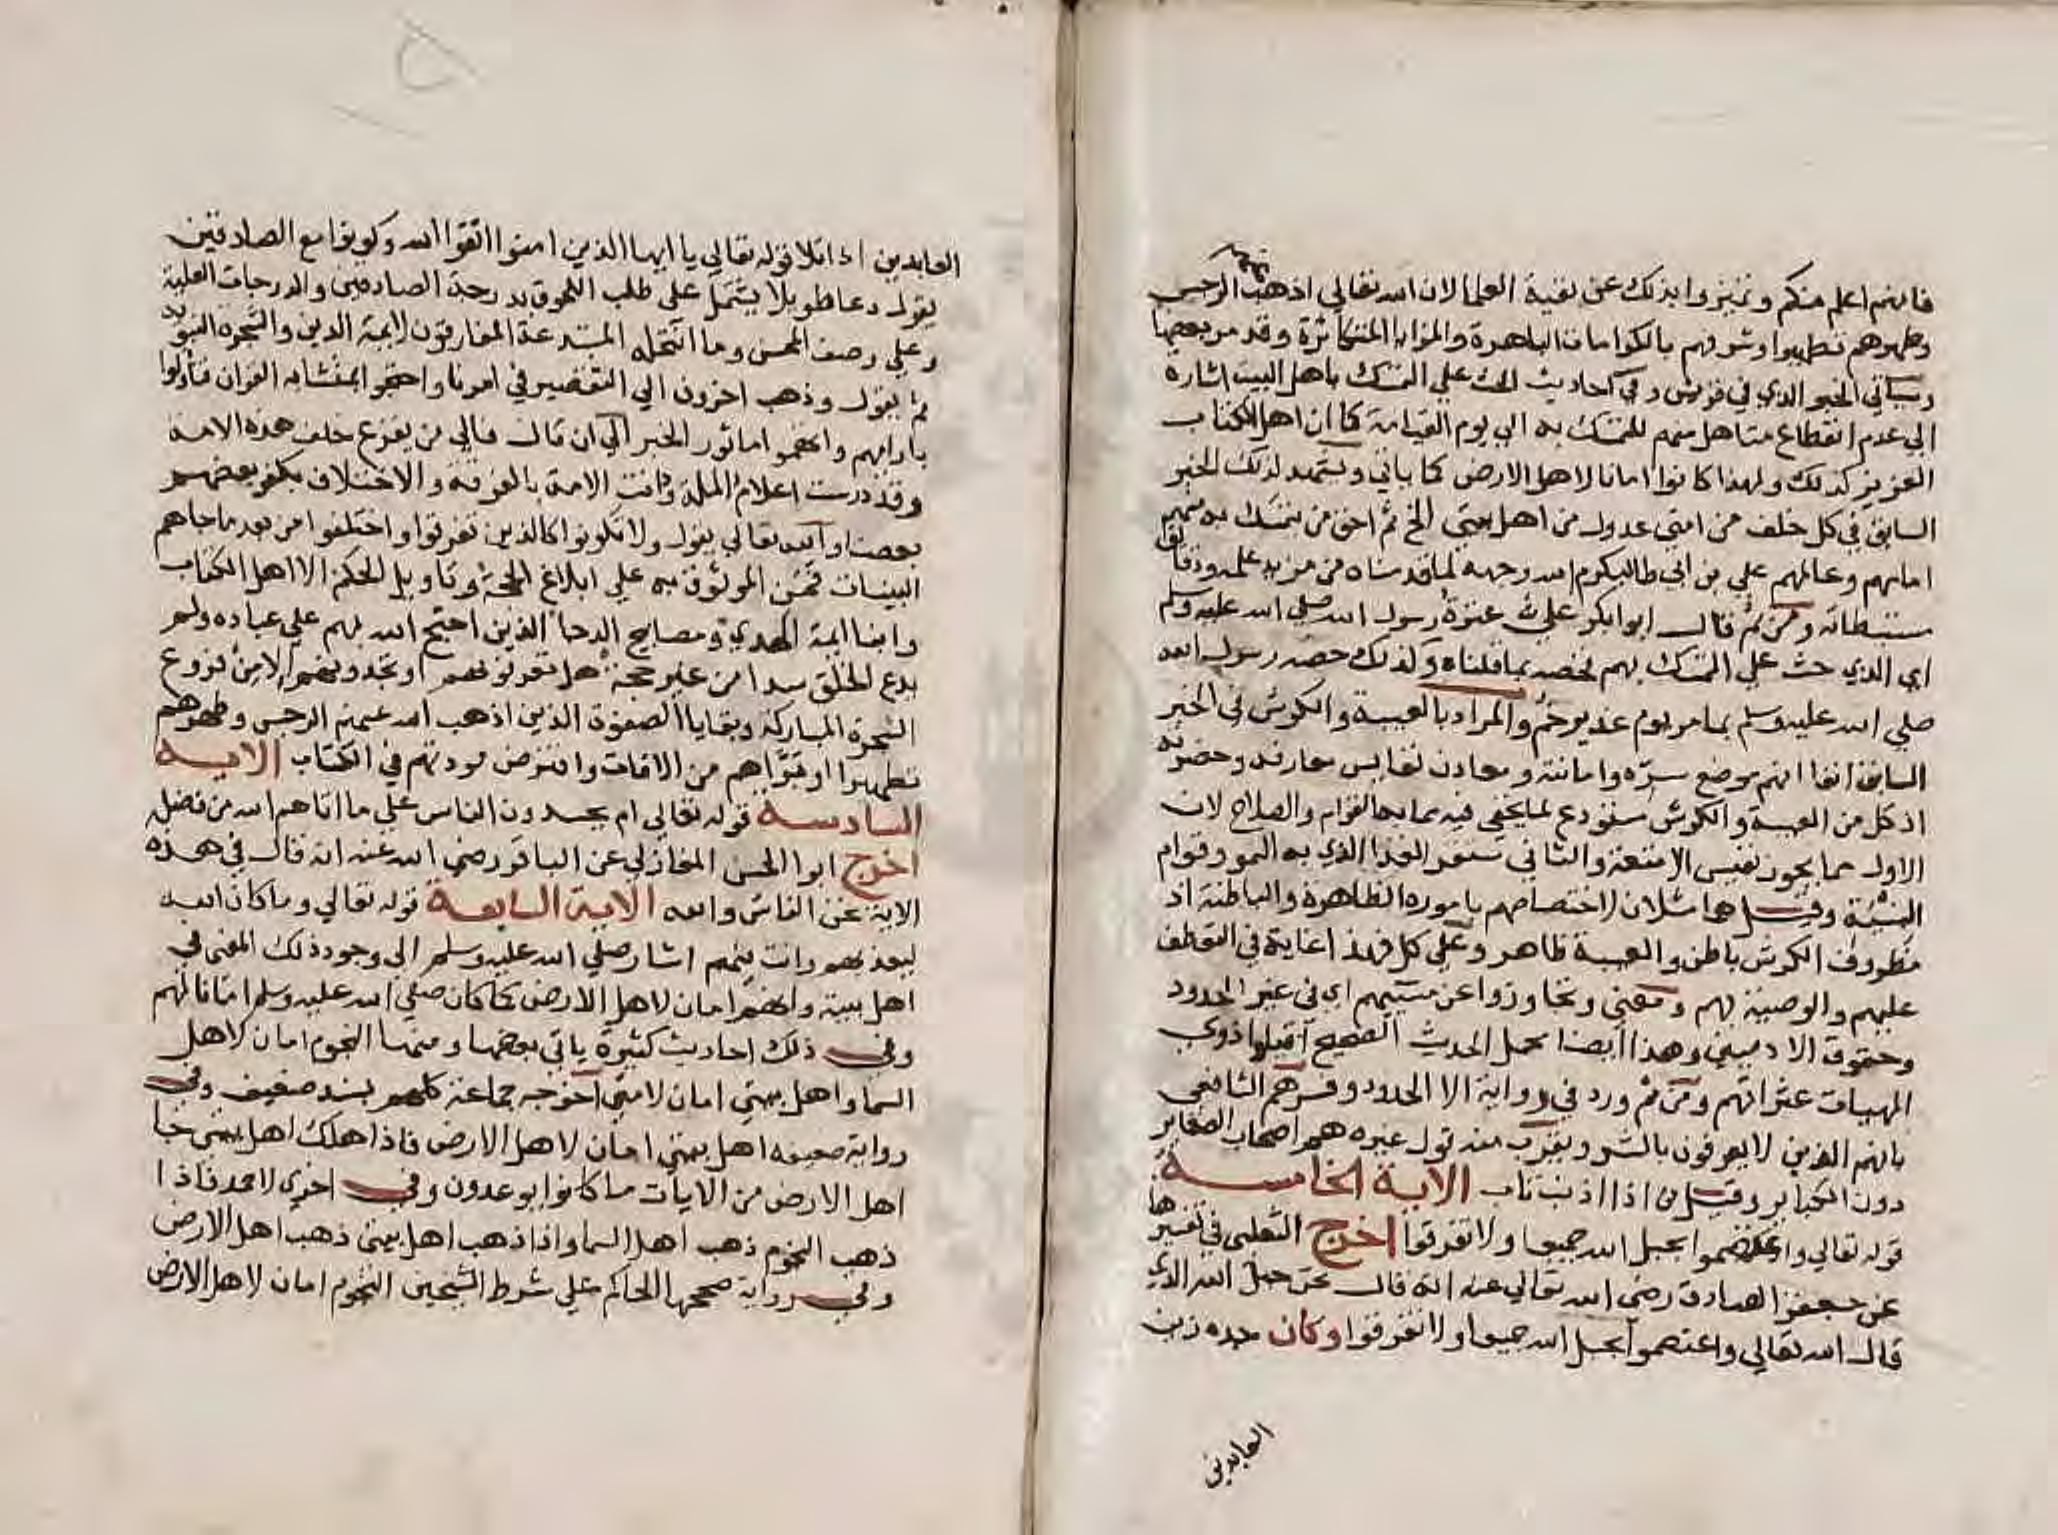 فانهم اعلم منكم وتميزوا بذلك عن بقية العلما لان الله تعالي اذهب عنهم الرجس
وطهرهم تطهيرا وشرفهم بالكرامات الباهرة والمزايا المتكاثرة وقد مر بعضها
وسياتي الخبر الذي في قريش وفي احاديث الحث علي التمسك باهل البيت اشارة
الي عدم انقطاع متاهل منهم للتمسك به الي يوم القيامة كما ان اهل الكتاب
العزيز كذلك ولهذا كانوا امانا لاهل الارض كما ياتي ويشهد لذلك الخبر
السابق في كل خلف من امتي عدول من اهل بيتي الخ ثم احق من يتمسك به منهم
امامهم وعالمهم علي بن ابي طالب كرم الله وجهه لما قدمناه من مزيد علمه ودقايق
مستنبطاته ومن ثم قال ابو بكر علي عترة رسول الله صلي الله عليه وسلم
اي الذي حث علي التمسك بهم فخصه بما قلناه وكذلك خصه رسول الله
صلي الله عليه وسلم بما مر يوم غدير خم والمراد بالعيبة والكرش في الخبر
السابق انفا انهم موضع سره وامانته ومعادن نفايس معارفه وحضرته
اذ كل من العيبة والكرش مستودع لما يخفي فيه مما به القوام والصلاح لان
الاول مما يحوز نفيس الامتعة والثاني مستقر الغذا الذي به النمو وقوام
البنية وقيل هما مثلان لاختصاصهم باموره الظاهرة والباطنة اذ
مظروف الكرش باطن والعيبة ظاهر وعلي كل فهذا غاية في التعطف
عليهم والوصية بهم ومعني وتجاوزوا عن مسيئهم اي في غير الحدود
وحقوق الادميين وهذا ايضا محمل الحديث الصحيح اقيلوا ذوي
الهيات عثراتهم ومن ثم ورد في رواية الا الحدود وفسرهم الشافعي
بانهم الذين لا يعرفون بالشر ويقرب منه قول غيره هم اصحاب الصغاير
دون الكباير وقيل من اذا اذنب تاب الاية الخامسة
قوله تعالي واعتصموا بحبل الله جميعا ولا تفرقوا اخرج الثعلبي في تفسيرها
عن جعفر الصادق رضي الله تعالي عنه انه قال نحن حبل الله الذي
قال الله تعالي واعتصموا بحبل الله جميعا ولا تفرقوا وكان جده زين
العابدين
العابدين اذا تلا قوله تعالي يا ايها الذين امنوا اتقوا الله وكونوا مع الصادقين
يقول دعا طويلا يشتمل علي طلب اللحوق بدرجة الصادقين والدرجات العلية
وعلي وصف المحن وما انتحله المبتدعة المفارقون لايمة الدين والشجرة النبوية
ثم يقول وذهب اخرون الي التقصير في امرنا واحتجوا بمتشابه القران فتاولوا
بارايهم واتهموا ماثور الخبر الي ان قال فالي من يفزع خلف هذه الامة
وقد درست اعلام الملة ودانت الامة بالفرقة والاختلاف يكفر بعضهم
بعضا والله تعالي يقول ولا تكونوا كالذين تفرقوا واختلفوا من بعد ما جاهم
البينات فمن الموثوق به علي ابلاغ الحجة وتاويل الحكم الا اهل الكتاب
وابنا ايمة الهدي ومصابيح الدجا الذين احتج الله بهم علي عباده ولم
يدع الخلق سدا من غير حجة هل تعرفونهم او تجدونهم الا من فروع
الشجرة المباركة وبقايا الصفوة الذين اذهب الله عنهم الرجس وطهرهم
تطهيرا وبراهم من الافات وافترض مودتهم في الكتاب الاية
السادسة قوله تعالي ام يحسدون الناس علي ما اتاهم الله من فضله
اخرج ابو الحسن المغازلي عن الباقر رضي الله عنه انه قال في هذه
الاية نحن الناس والله الاية السابعة قوله تعالي وما كان الله
ليعذبهم وانت فيهم اشار صلي الله عليه وسلم الي وجود ذلك المعني في
اهل بيته وانهم امان لاهل الارض كما كان صلي الله عليه وسلم امانا لهم
وفي ذلك احاديث كثيرة ياتي بعضها ومنها النجوم امان لاهل
السما واهل بيتي امان لامتي اخرجه جماعة كلهم بسند ضعيف وفي
رواية ضعيفه اهل بيتي امان لاهل الارض فاذا هلك اهل بيتي جا
اهل الارض من الايات ما كانوا يوعدون وفي اخري لاحمد فاذا
ذهب النجوم ذهب اهل السما واذا ذهب اهل بيتي ذهب اهل الارض
وفي رواية صححها الحاكم علي شرط الشيخين النجوم امان لاهل الارض